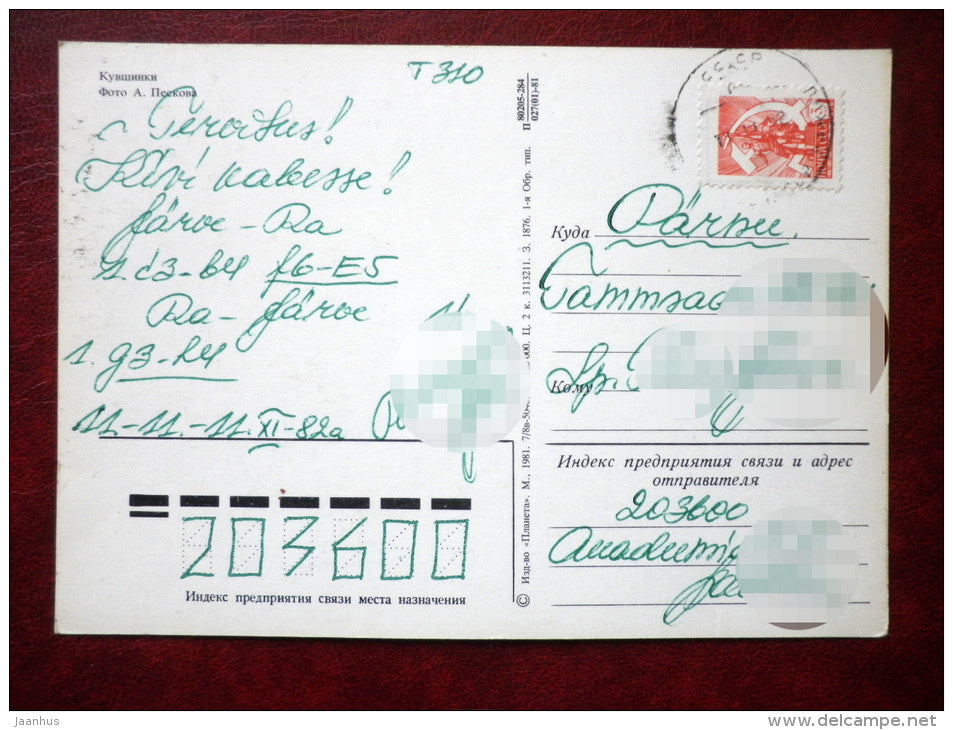 Кувшинки
Фото А. Пескова
T 310
Tervitus!
Kiiri kabesse!
Järve - Ra
1. d3-b4 f6-E5
Ra - Järve
1. g3-h4
11.-11.-11.XI-82a
П 80205-284
027(01)-81
© Изд-во «Планета». М., 1981. 7/8в-504
000. Ц. 2 к. 3113211. З. 1876. 1-я Обр. тип.
СССР
ПОЧТА СССР
Куда Pärnu
Tammsaa
Кому
Индекс предприятия связи и адрес
отправителя
203600
203600
Индекс предприятия связи места назначения
Jaanhus
www.delcampe.net